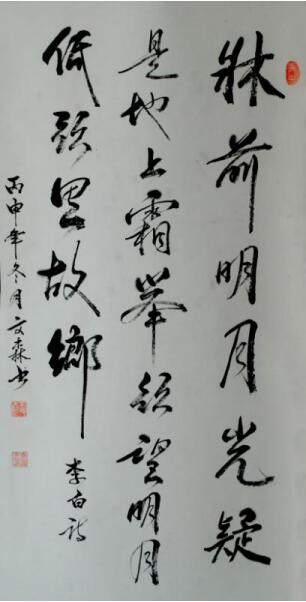 牀前明月光疑
是地上霜舉頭望明月
低頭思故鄉
李白詩
丙申年冬月文森书